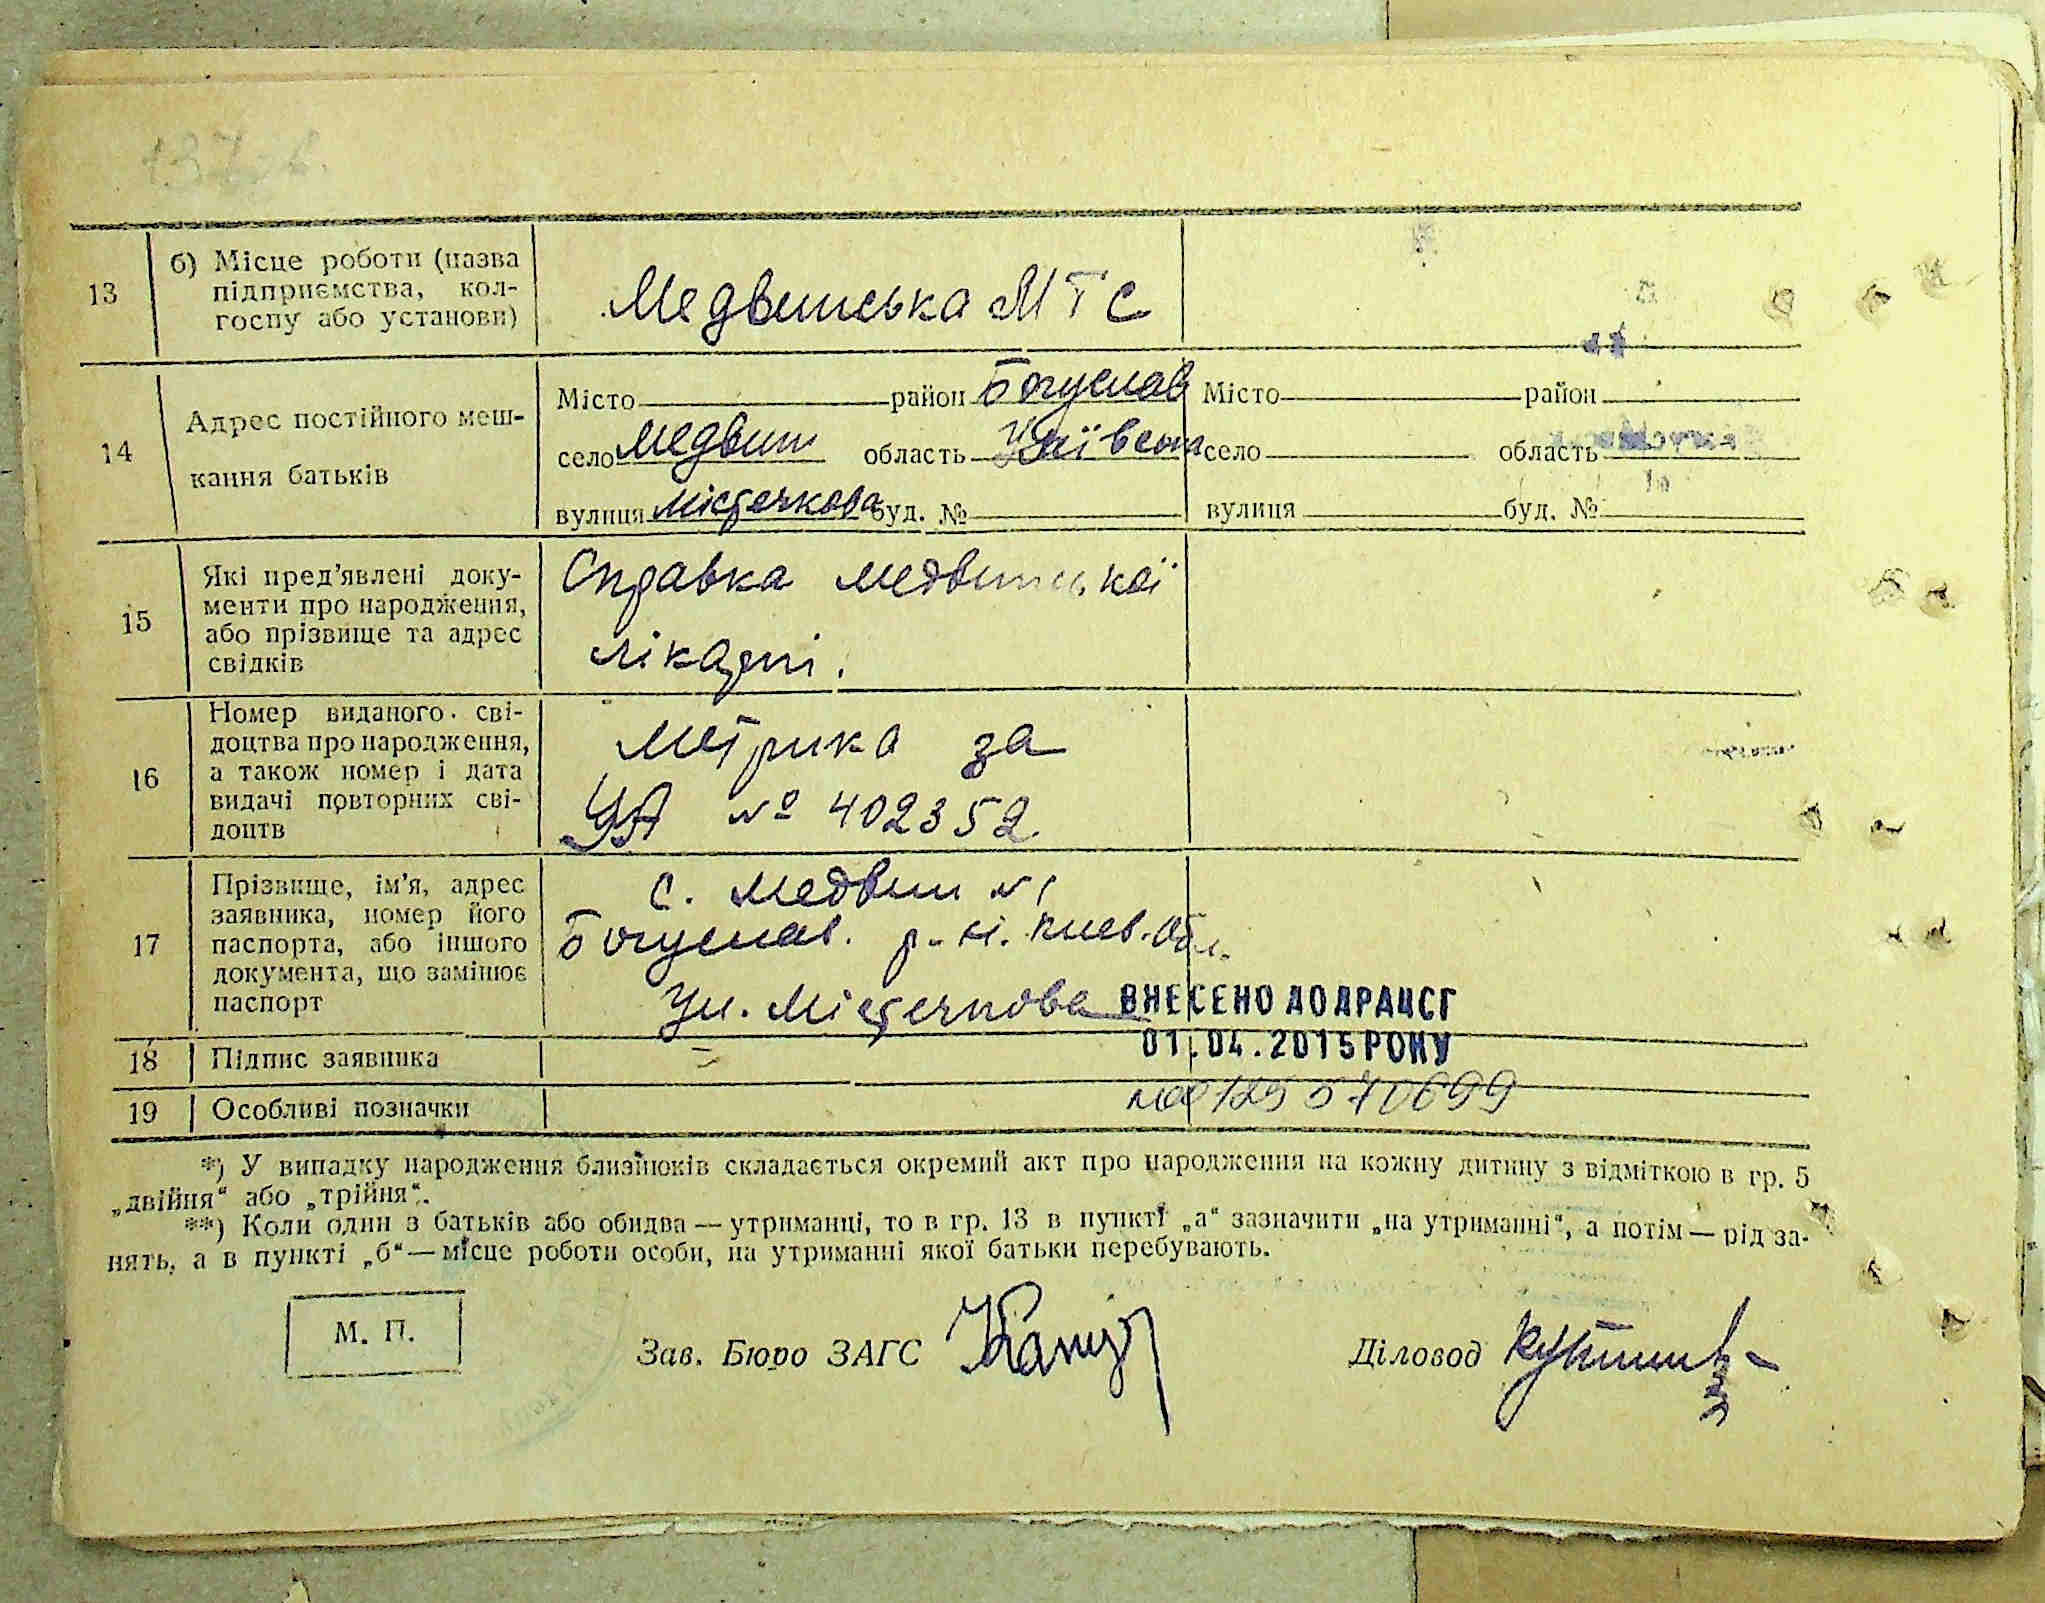 13
б) Місце роботи (назва
підприємства, кол-
госпу або установи)
Медвинська МТС
14
Адрес постійного меш-
кання батьків
Місто район Богуслав
село Медвин область Київськ
вулиця Містечкова буд. №
Місто район
село область
вулиця буд. №
15
Які пред’явлені доку-
менти про народження,
або прізвище та адрес
свідків
Справка медвинської
лікарні.
16
Номер виданого сві-
доцтва про народження,
а також номер і дата
видачі повторних сві-
доцтв
Метрика за
УА № 402352
17
Прізвище, ім’я, адрес
заявника, номер його
паспорта, або іншого
документа, що замінює
паспорт
с. Медвин №1
Богуслав. р-н. Киев. обл.
Ул. Містечкова
ВНЕСЕНО ДО ДРАЦСГ
01.04.2015 РОКУ
18
Підпис заявника
19
Особливі позначки
*) У випадку народження близнюків складається окремий акт про народження на кожну дитину з відміткою в гр. 5
„двійня“ або „трійня“.
**) Коли один з батьків або обидва — утриманці, то в гр. 13 в пункті „а“ зазначити „на утриманні“, а потім — рід за-
нять, а в пункті „б“ — місце роботи особи, на утриманні якої батьки перебувають.
М. П.
Зав. Бюро ЗАГС
Діловод